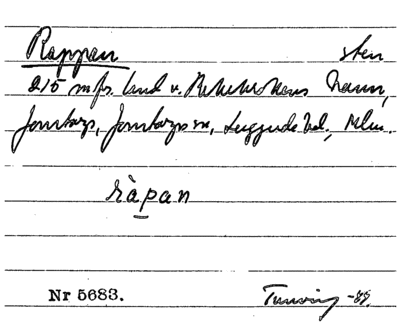 Rappan sten
215 m fr. land v. Rekekroken Hamn,
Jonstorp, Jonstorps sn, Luggude hd, Mlm.
ràpan
Nr 5683. Tuneving -77.